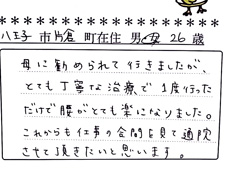 八王子市片倉町在住 男・女 26歳
母に勧められて行きましたが、
とても丁寧な治療で1度行った
だけで腰がとても楽になりました。
これからも仕事の合間を見て通院
させて頂きたいと思います。